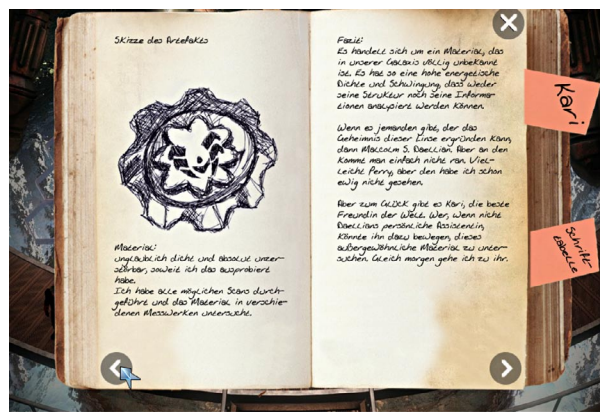 Skizze des Artefakts
Material:
unglaublich dicht und absolut unzer-
störbar, soweit ich das ausprobiert
habe.
Ich habe alle möglichen Scans durch-
geführt und das Material in verschie-
denen Messwerken untersucht.
Fazit:
Es handelt sich um ein Material, das
in unserer Galaxis völlig unbekannt
ist. Es hat so eine hohe energetische
Dichte und Schwingung, dass weder
seine Struktur noch seine Informa-
tionen analysiert werden können.
Wenn es jemanden gibt, der das
Geheimnis dieser Linse ergründen kann,
dann Malcolm S. Daellian. Aber an den
kommt man einfach nicht ran. Viel-
leicht Perry, aber den habe ich schon
ewig nicht gesehen.
Aber zum Glück gibt es Kari, die beste
Freundin der Welt. Wer, wenn nicht
Daellians persönliche Assistentin,
könnte ihn dazu bewegen, dieses
außergewöhnliche Material zu unter-
suchen. Gleich morgen gehe ich zu ihr.
Kari
Schrift-
tabelle